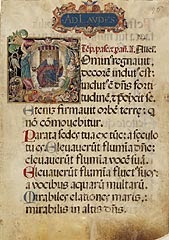 AD LAVDES
Dñs regnauit,
decorē indut' est:
indut' est dñs forti
tudinē, & p̄cixit se.
Etenis firmauit orbē terre: q̄
nō cōmouebitur.
Parata sedes tua ex tūc: a seculo
tu es. Eleuauerūt flumia dñe:
eleuauerūt flumia vocē suā.
Eleuauerūt flumia fluct' suos:
a vocibus aquarū multarū.
Mirabiles elationes maris:
mirabilis in altis dñs.